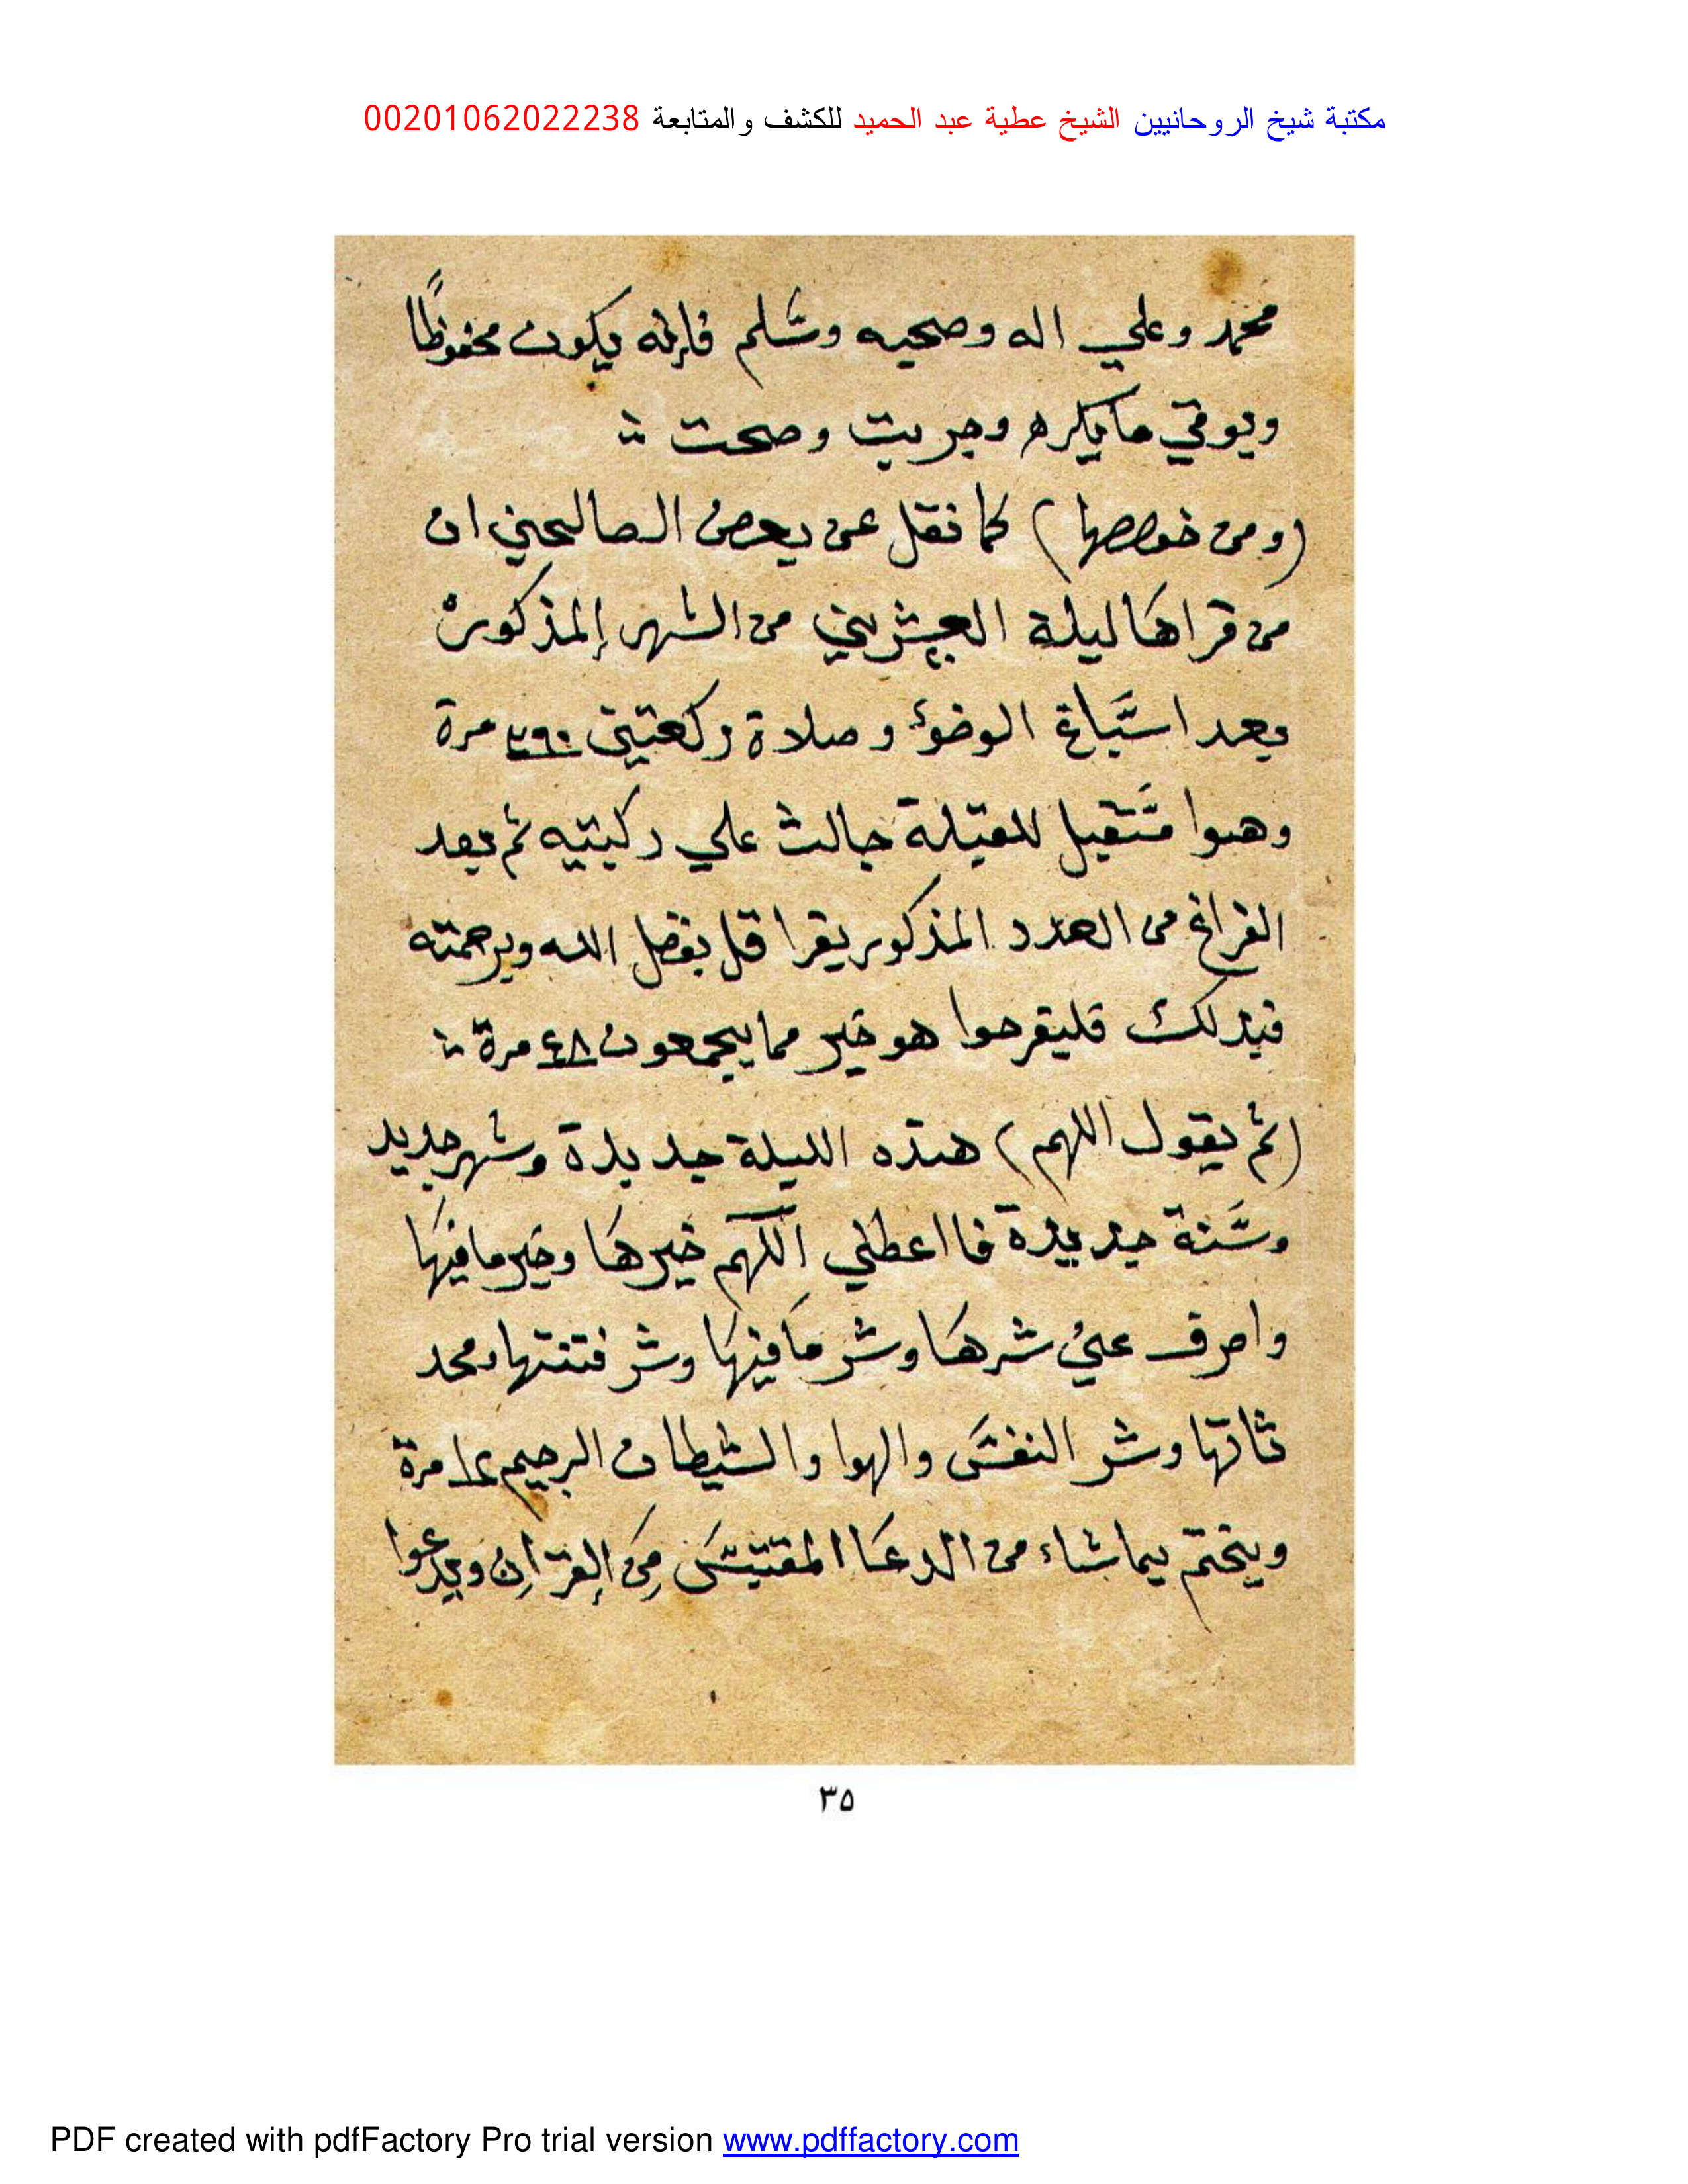 مكتبة شيخ الروحانيين الشيخ عطية عبد الحميد للكشف والمتابعة 00201062022238
محمد وعلي اله وصحبه وسلم فإنه يكون محفوظًا
ويوقي مايكره وجربت وصحت
(ومن خواصها) كما نقل عن بعض الصالحين ان
من قراها ليلة العشرين من الشهر المذكور
بعد اسباغ الوضؤ وصلاة ركعتين ٣٦٠ مرة
وهوا مستقبل للقبلة جالس علي ركبتيه ثم بعد
الفراغ من العدد المذكور يقرا قل بفضل الله وبرحمته
فبذلك فليفرحوا هو خير مما يجمعون ٤٨ مرة
(ثم يقول اللهم) هذه الليلة جديدة وشهر جديد
وسنة جديدة فااعطني اللهم خيرها وخير مافيها
واصرف عني شرها وشر مافيها وشر فتنتها ومحد
ثاتها وشر النفس والهوا والشيطان الرجيم ١٢ مرة
ويختم بماشاء من الدعا المقتبس من القرآن ويدعوا
٣٥
PDF created with pdfFactory Pro trial version www.pdffactory.com